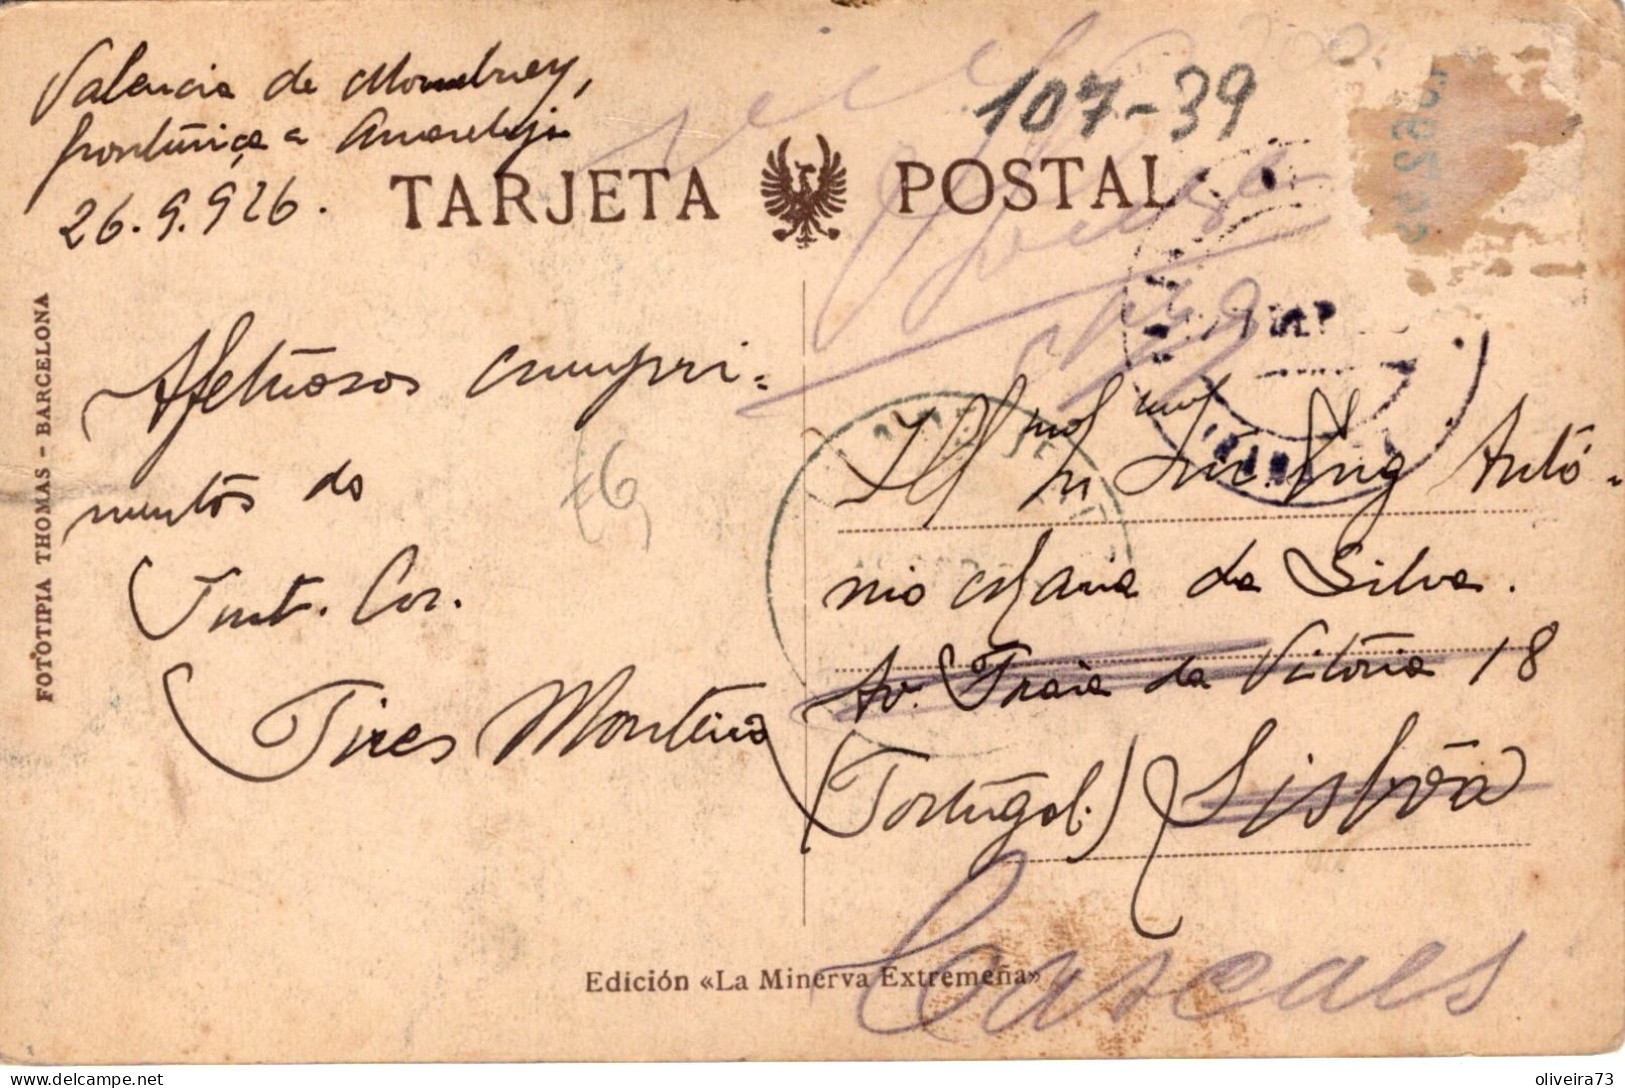 Valencia de Mombuey,
fronteiriça a Amareleja
26.9.926.
107-39
TARJETA POSTAL
FOTOTIPIA THOMAS - BARCELONA
Afetuosos cumpri-
mentos do
Ten. Cor.
Pires Monteiro
Illmo Exmo Snr. Eng Antó-
nio Maria da Silva.
Av. Praia da Vitória 18
(Portugal.) Lisbôa
Cascaes
Edición «La Minerva Extremeña»
delcampe.net
oliveira73